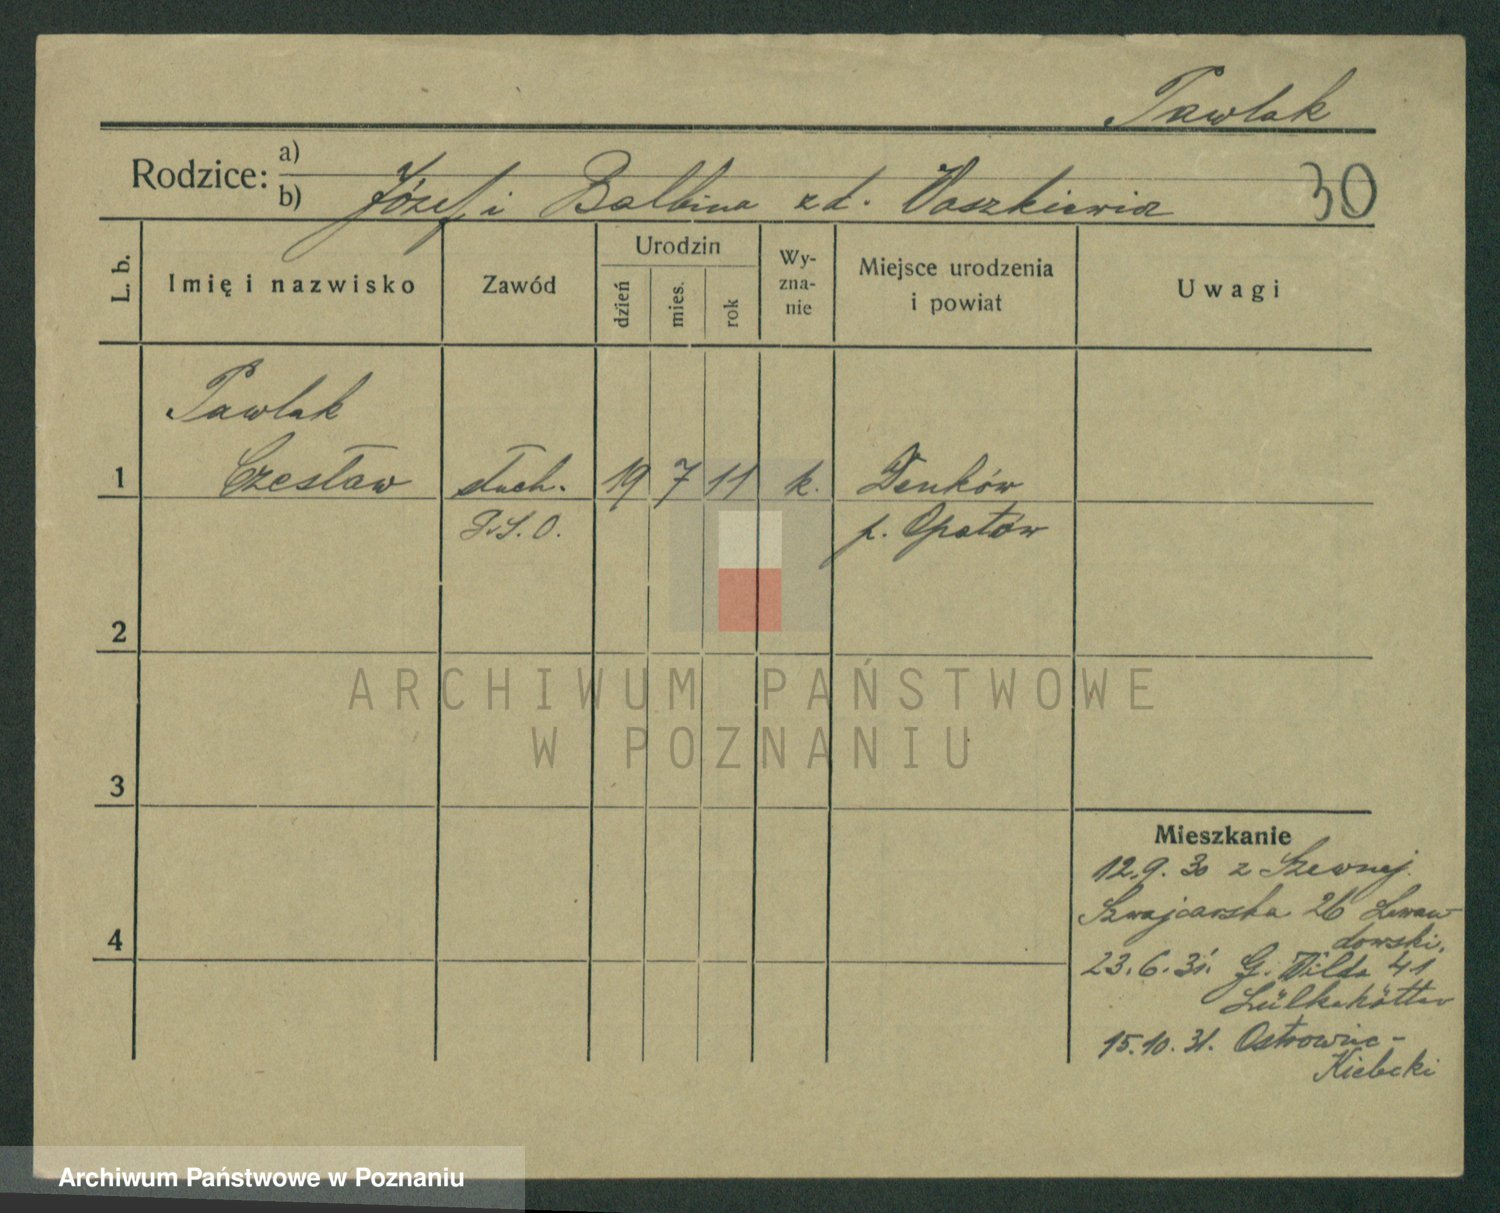 Pawlak
Rodzice: a)
b) Józef i Balbina zd. Waszkiewicz
30
L. b. Imię i nazwisko Zawód Urodzin dzień mies. rok Wy-zna-nie Miejsce urodzenia i powiat Uwagi
Pawlak
1 Czesław słuch. 19 7 11 k. Denków
P.S.O. p. Opatów
2
ARCHIWUM PAŃSTWOWE
W POZNANIU
3
Mieszkanie
12.9.30 z Szewnej.
Szwajcarska 26 Lewan-
4 dowski.
23.6.31. G. Wilda 41
15.10.31. Ostrowiec-
Kielecki
Archiwum Państwowe w Poznaniu